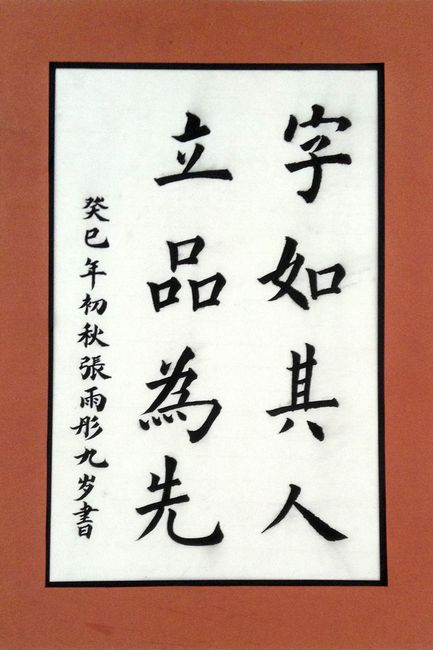 字如其人
立品為先
癸巳年初秋張雨彤九岁書